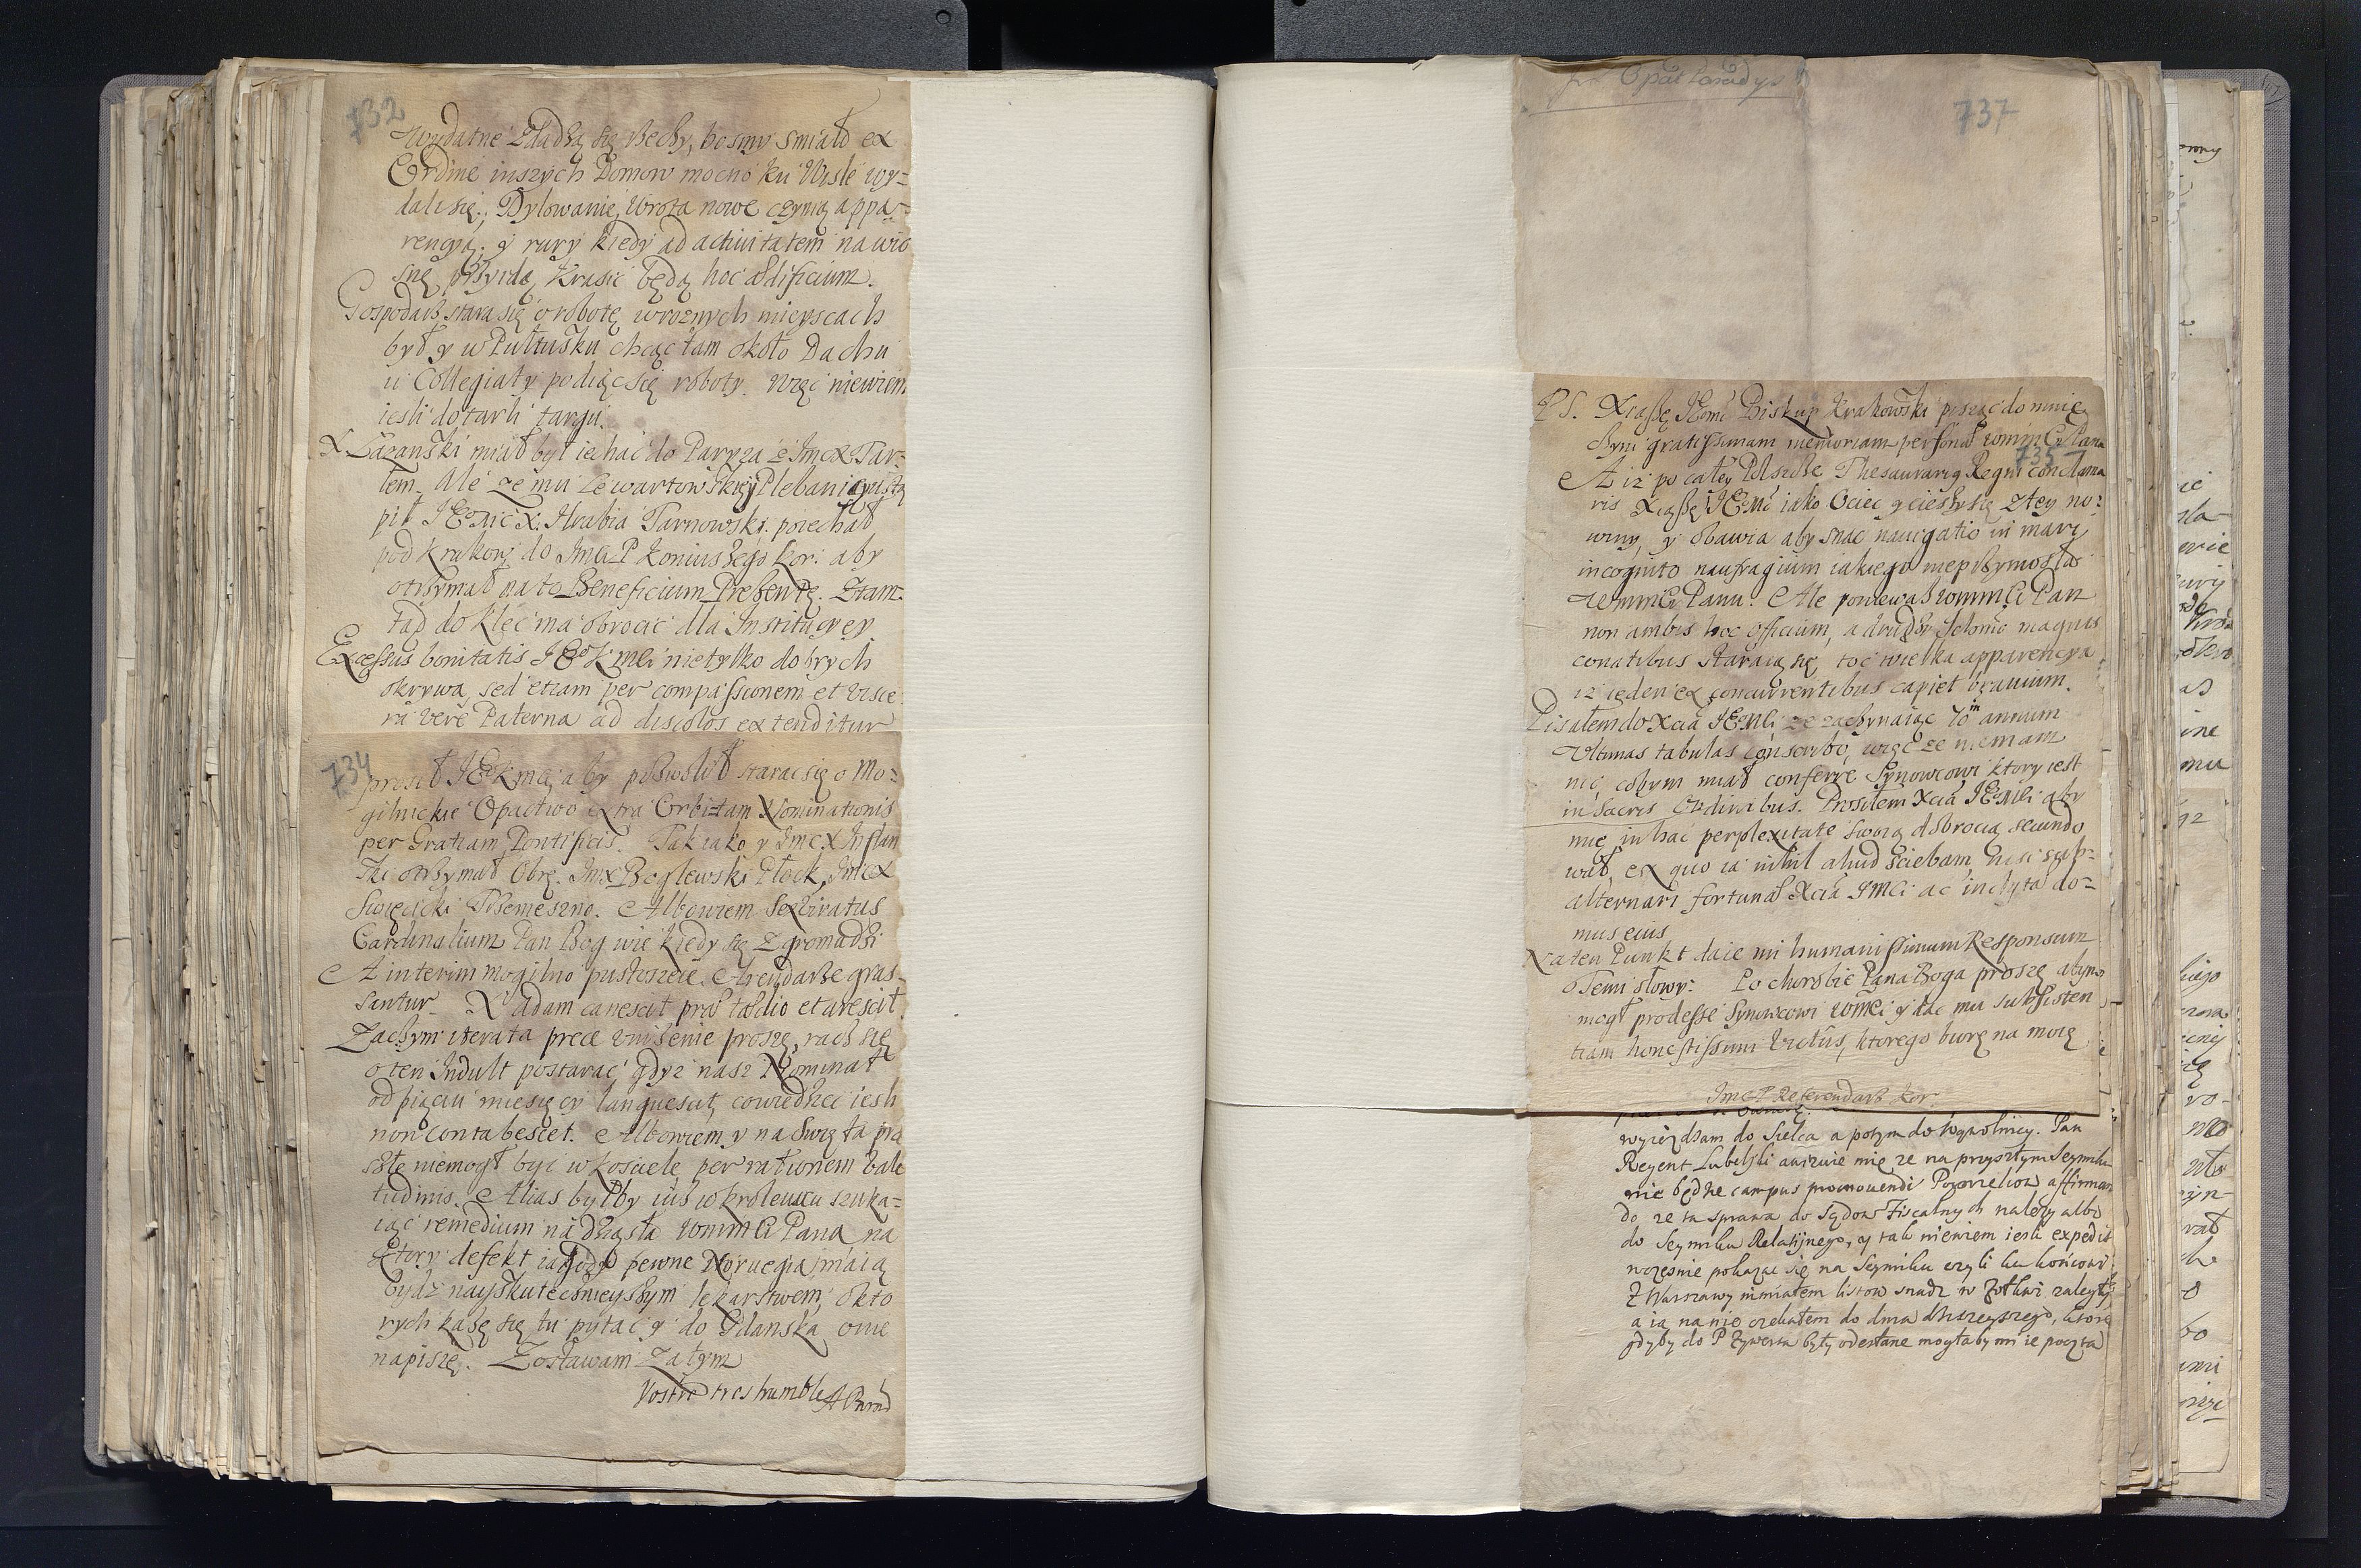 732
wydatne zdadzą się rzeczy, bośmy śmiało ex
Ordine inszych Domow mocno ku Wisle wy=
dali się. Dylowanie, Wrota nowe czynią appa=
rencyą. y rury kiedy ad activitatem na wio
snę przyidą, krasić będą hoc ædificium.
Gospodarz stara się o robotę w roznych mieyscach
był y w Pułtusku chcąc tam około Dachu
u Collegiaty podiąć się roboty. Więc niewiem
iesli dotarli targu.
X Łazanski miał był iechać do Paryza z Imcx Tar=
łem. Ale ze mu Lewartowskiey Plebanij ustą
pił JEoMć X. Hrabia Tarnowski, poiechał
pod Krakow do Jmci P Koniuszego Kor: aby
otrzymał na to Beneficium Prezentę. Ztam=
tąd do Kielc ma obrocić dla Institucyey
Excessus bonitatis JEoXmci nietylko dobrych
okrywa, sed etiam per compassionem et visce
ra vere Paterna ad discolos extenditur
734
prosił JEXmci, aby pozwolił starac się o Mo=
gilnickie Opactwo extra Orbitam Nominationis
per Gratiam Pontificis. Tak iako y Imcx Inflan
tski otrzymał Obrę. Imx Boglewski Płock, Imcx
Swięcicki Trzemeszno. Albowiem Sexviratus
Cardinalium Pan Bog wie kiedy się zgromadzi
A interim Mogilno pustoszeie. Arendarze gras=
santur. X Adam canescit præ tædio et arescit.
Zaczym iterata prece uniżenie proszę, racz się
o ten Indult postarać gdyz nasz Nominat
od pięciu miesięcy languescit, cowiedziec iesli
non contabescet. Albowiem y na Święta prze
szłe niemogł być w kosciele per rationem vale
tudinis. Alias byłby iuż w Krolewcu szuka=
iąc remedium na dziąsła WMMCi Pana na
ktory defekt iagody pewne Norvegia maią
bydź nayskutecznieyszym lekarstwem, o kto
rych każę się tu pytać y do Gdanska o nie
napiszę. Zostawam zatym
Vostre tres humble
737
PS. Xiąże JEoMć Biskup Krakowski pisząc do mnie
czyni gratissimam memoriam persony WMMCi Pana
735
A iz po całey Polszcze Thesaurarius Regni conclama
ris Xiąże JEoMć iako Ociec y cieszy się z tey no=
winy, y obawia aby snac navigatio in mari
incognito naufragium iakiego nieprzyniosła
WMMCi Panu. Ale poniewasz WMMCi Pan
non ambis hoc officium, a drudzy Jchmć magnis
conatibus staraią się, toć wielka apparencya
iz ieden ex concurrentibus capiet bravium.
Pisałem do Xcia JEoMci ze zaczynaiąc 70 in annum
Ultimas tabulas conscribo, więc ze niemam
nic, cobym miał conferre Synowcowi ktory iest
in Sacris Ordinibus. Prosiłem Xcia JEoMci aby
mię in hac perplexitate swoią dobrocią secundo
wał, ex quo ia nihil aliud sciebam nisi sub=
alternari fortunæ Xcia JMci ac inclytæ do=
mus eius
Na ten Punkt daie mi humanissimum Responsum
Temi słowy: Po chorobie Pana Boga proszę abym
mogł prodesse Synowcowi WMci y dac mu subsisten
tiam honestissimi Victus, ktorego biorę na moię
Jmc P Referendarz Kor
wyieżdzam do Sielca a potym do Wysolnicy. Pan
Regent Lubelski awizuie mię ze na przyszłym Seymiku
nie będzie campus promovendi Pogorzelcow affirman
do ze ta sprawa do Sędow Fiscalnych nalezy albo
do Seymiku Relatijnego, y tak niewiem iesli expedit
wczesnie pokazac się na Seymiku czyli ku koncowi
Z Warszawy niemiałem listow snadz w Zołkwi zaległy
a ia na nie czekałem do dnia dzisieyszego, ktore
gdyby do P Zywerta były odesłane mogłaby mi ie poczta